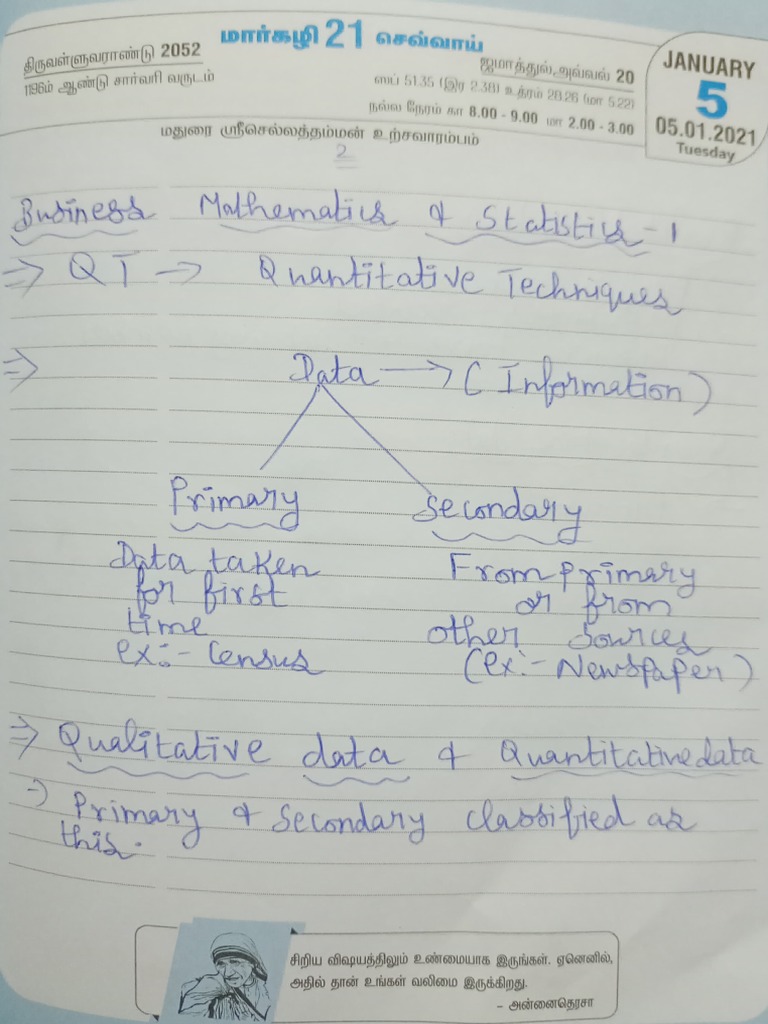 மார்கழி 21 செவ்வாய்
திருவள்ளுவராண்டு 2052
1196ம் ஆண்டு சார்வரி வருடம்
ஜமாத்துல்அவ்வல் 20
ஸப் 51.35 (இர 2.38) உத்ரம் 28.26 (மா 5.22)
நல்ல நேரம் கா 8.00 - 9.00 மா 2.00 - 3.00
மதுரை ஸ்ரீசெல்லத்தம்மன் உற்சவாரம்பம்
JANUARY
5
05.01.2021
Tuesday
2
Business Mathematics & Statistics - 1
⇒ QT → Quantitative Techniques
⇒ Data → (Information)
Primary Secondary
Data taken
for first
time
ex:- Census
From primary
or from
other sources
(ex:- Newspaper)
⇒ Qualitative data & Quantitative data
→ Primary & Secondary classified as
this.
சிறிய விஷயத்திலும் உண்மையாக இருங்கள். ஏனெனில்,
அதில் தான் உங்கள் வலிமை இருக்கிறது.
- அன்னைதெரசா